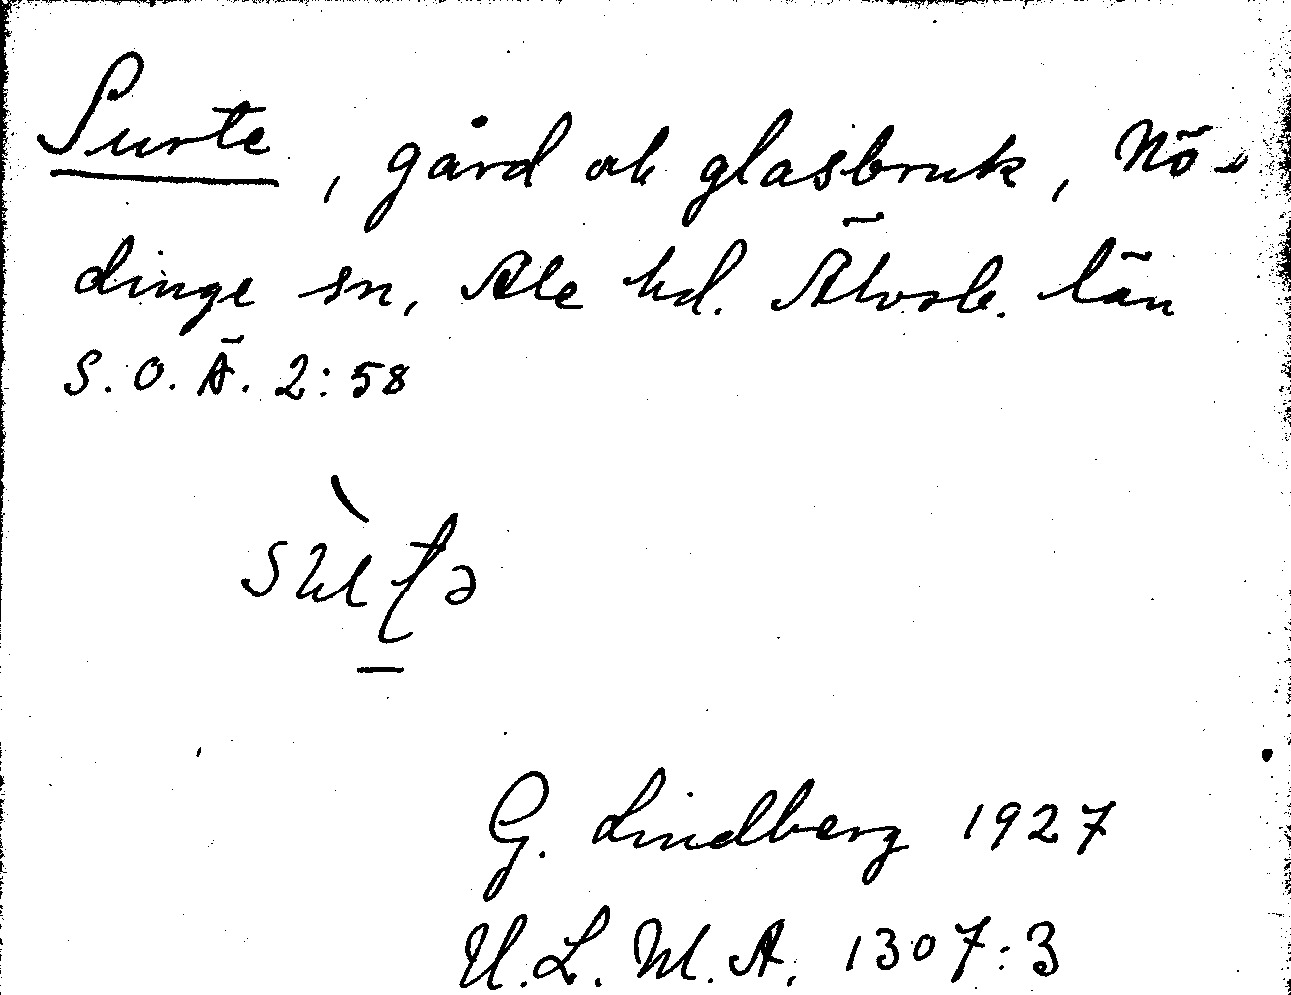 Surte, gård och glasbruk, Nö-
dinge sn, Ale hd. Älvsb. län
S. O. Ä. 2:58
G. Lindberg 1927
U.L.M.A. 1307:3